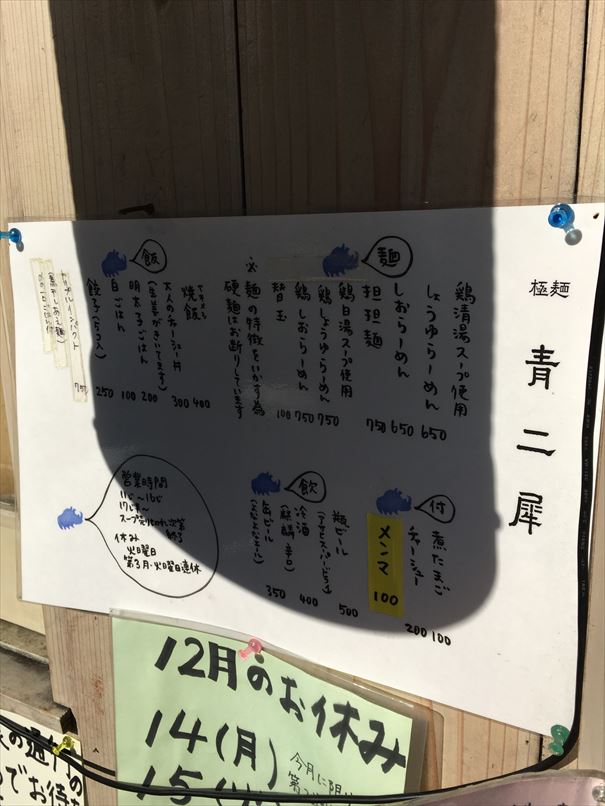 極麺
青二犀
麺
鶏清湯スープ使用
しょうゆらーめん 650
しおらーめん 650
担担麺 750
鶏白湯スープ使用
鶏しょうゆらーめん 750
鶏しおらーめん 750
替玉 100
※麺の特徴をいかす為
硬麺はお断りしています
飯
焼飯 400
大人のチャーシュー丼 300
(生姜がきいてます)
明太子ごはん 200
白ごはん 100
餃子(5コ入) 250
750
付
煮たまご 100
チャーシュー 200
メンマ 100
飲
瓶ビール 500
冷酒 400
(麒麟 辛口)
缶ビール 350
営業時間
11じ〜16じ
17じ半〜
スープ売り切れ次第
終了
休み
火曜日
第3月・火曜日連休
12月のお休み
14(月)
15(火)
今月に限
第